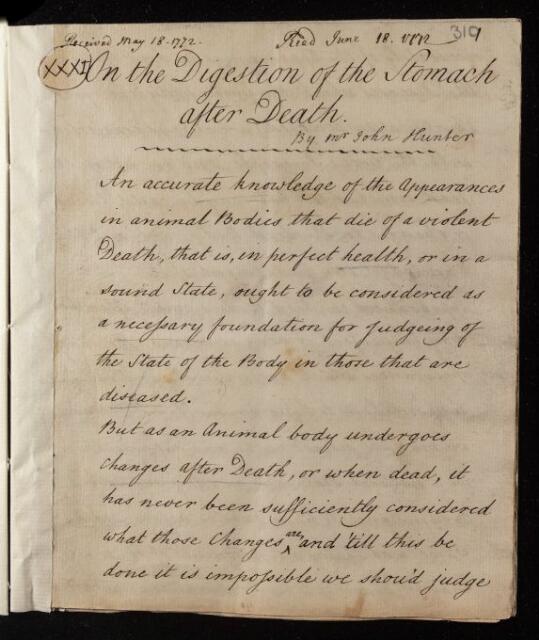 Received May 18. 1772.
Read June 18. 1772
319
XXXI
On the Digestion of the Stomach
after Death.
By Mr John Hunter
An accurate knowledge of the Appearances
in animal Bodies that die of a violent
Death, that is, in perfect health, or in a
sound State, ought to be considered as
a neceſsary foundation for Judgeing of
the State of the Body in those that are
diseased.
But as an Animal body undergoes
changes after Death, or when dead, it
has never been sufficiently considered
what those Changes are, and 'till this be
done it is impoſsible we shou'd judge